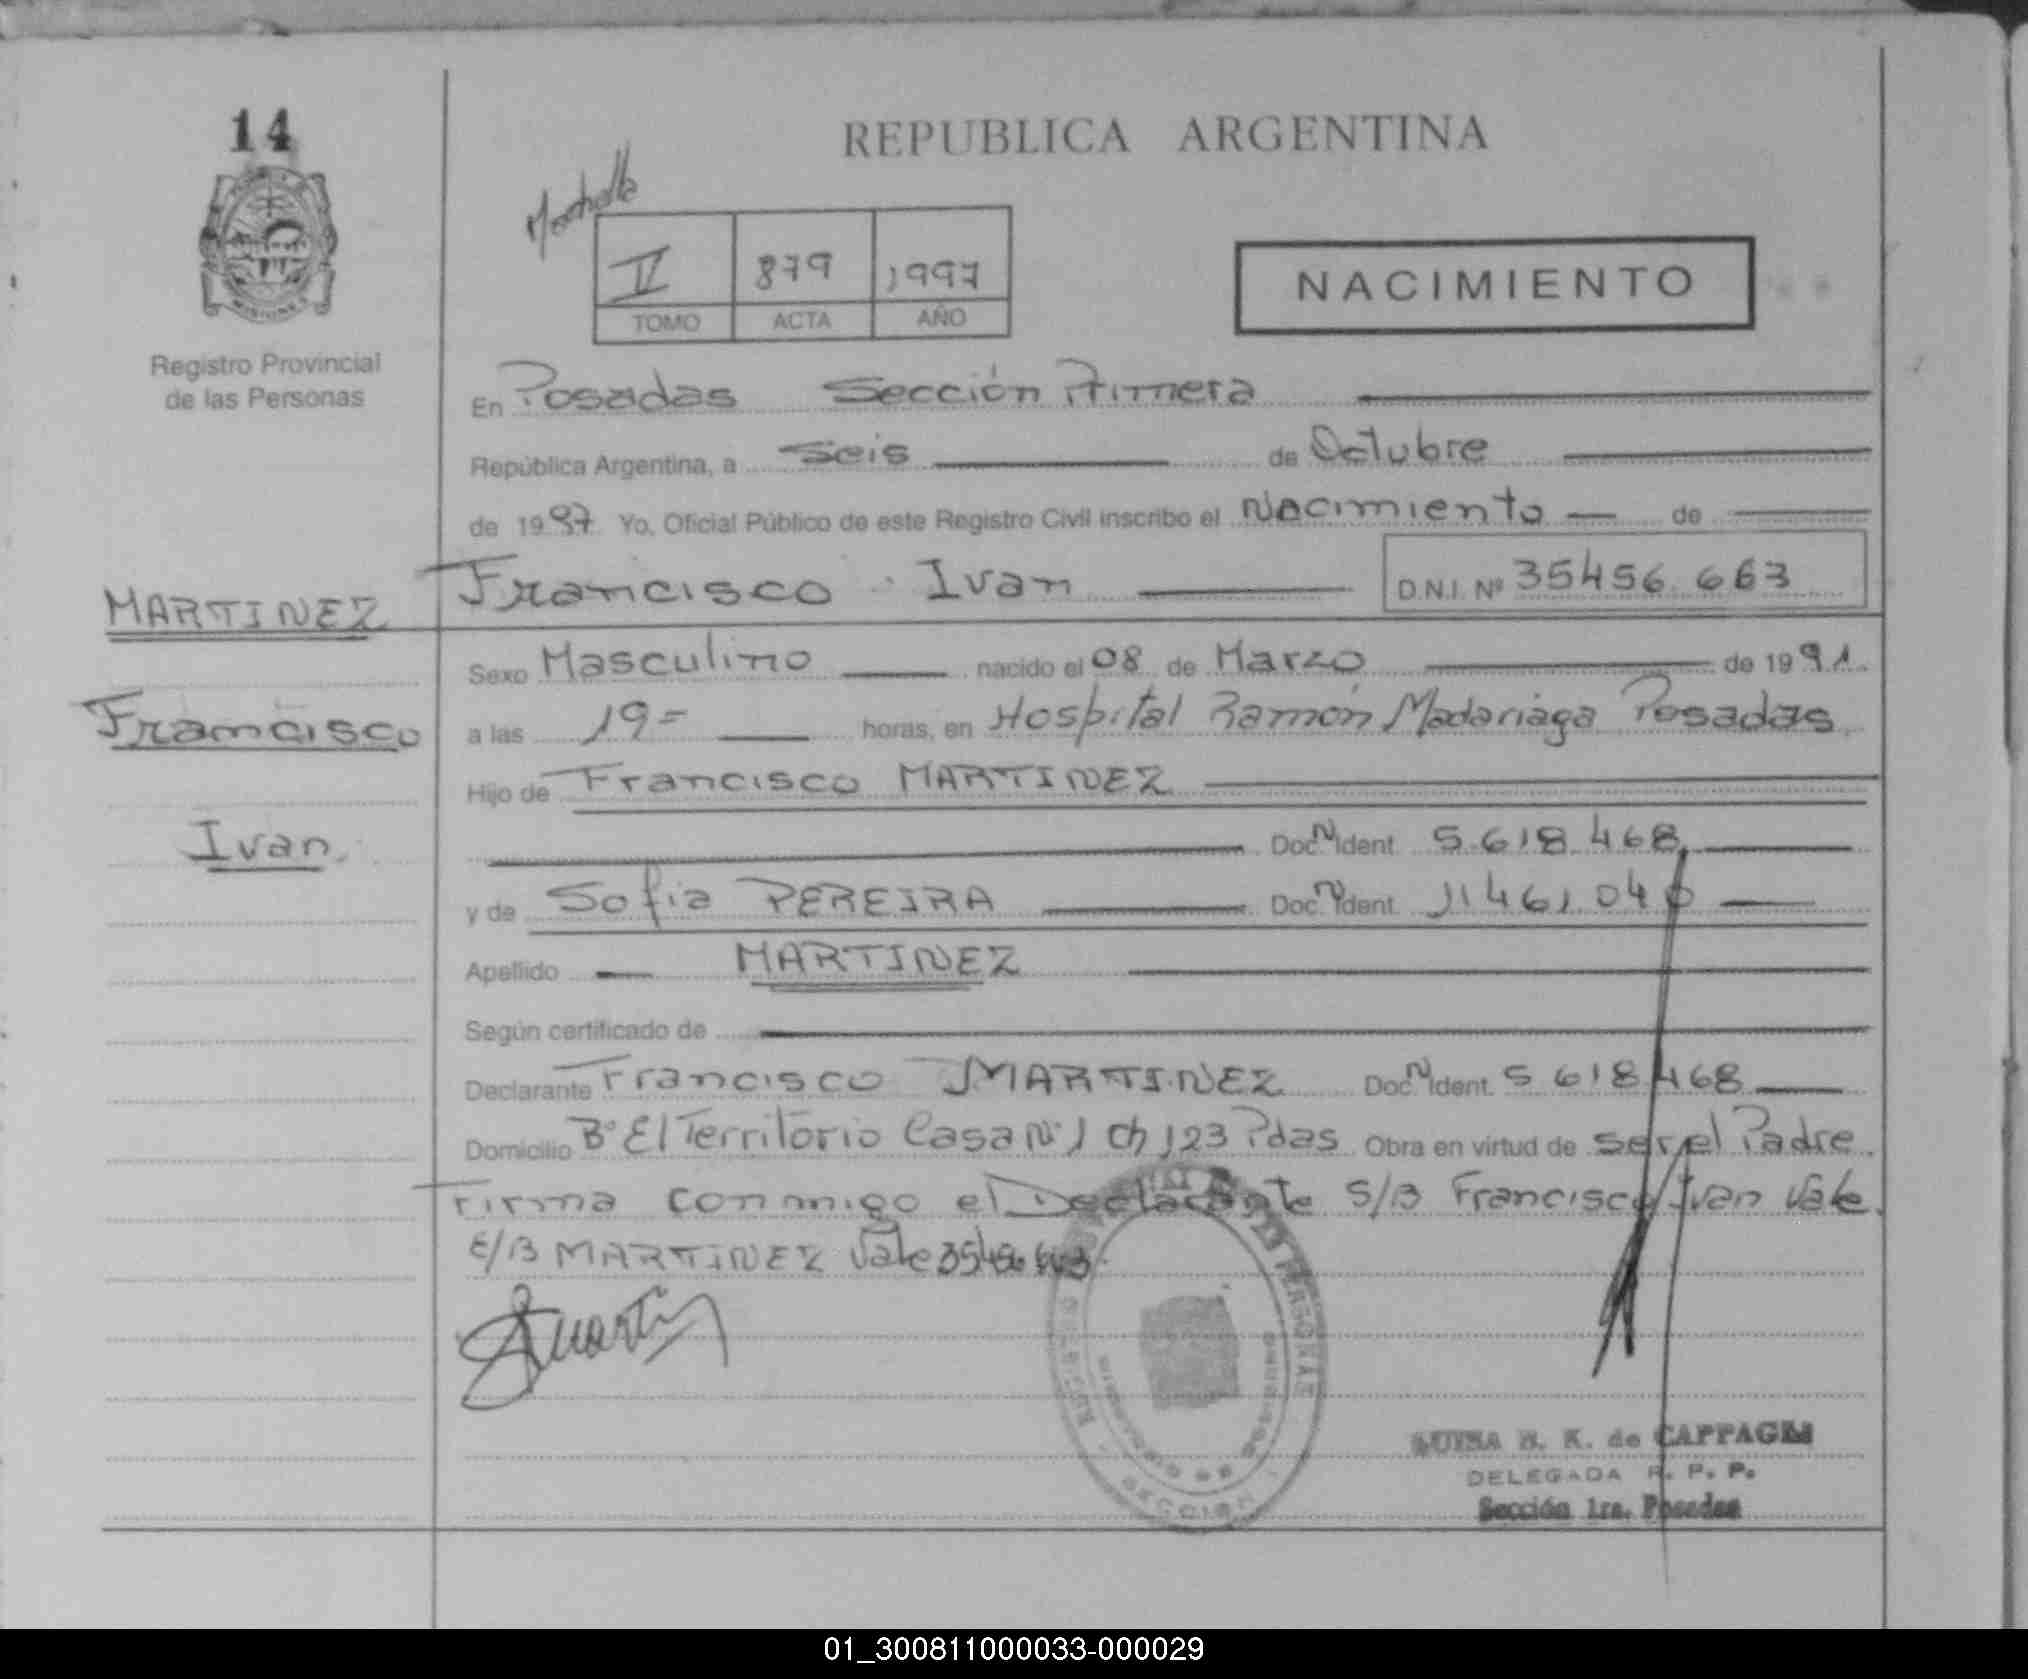 14
REPUBLICA ARGENTINA
II 879 1997
TOMO ACTA AÑO
NACIMIENTO
MISIONES
Registro Provincial
de las Personas
En Posadas Sección Primera
República Argentina, a Seis de Octubre
de 1997 Yo, Oficial Público de este Registro Civil inscribo el Nacimiento de
Francisco Ivan D.N.I. Nº 35456.663
MARTINEZ
Francisco
Ivan
Sexo Masculino nacido el 08 de Marzo de 1991.
a las 19= horas, en Hospital Ramón Madariaga Posadas
Hijo de Francisco MARTINEZ
Doc. N Ident. 5.618.468
y de Sofia PEREIRA Doc. N Ident. 11461.040
Apellido MARTINEZ
Según certificado de
Declarante Francisco MARTINEZ Doc. N Ident. 5 618 468
Domicilio Bº El Territorio Casa Nº 1 Ch 123 Pdas Obra en virtud de ser el Padre.
Firma conmigo el Declarante S/B Francisco Ivan Vale.
E/B MARTINEZ Vale
SECCION
LUISA B. K. de CAPPAGLI
DELEGADA R. P. P.
Sección 1ra. Posadas
01_300811000033-000029